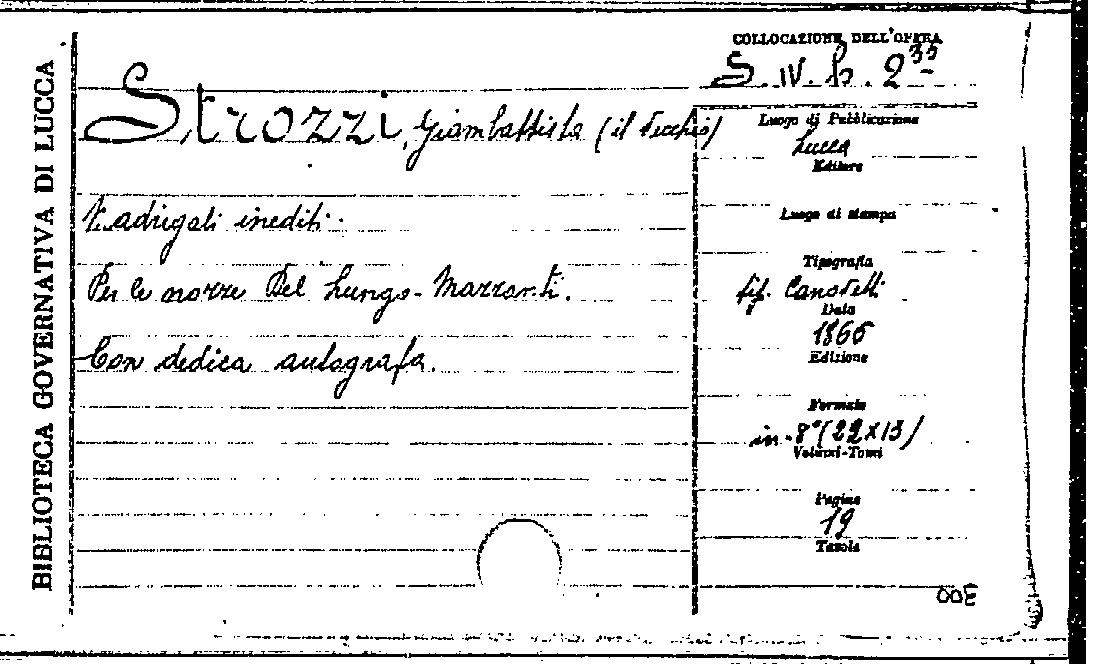 BIBLIOTECA GOVERNATIVA DI LUCCA
COLLOCAZIONE DELL'OPERA
S. IV. b. 2 35
Strozzi, Giambattista (il Vecchio)
Madrigali inediti.
Per le nozze Del Lungo-Mazzanti.
Con dedica autografa.
Luogo di Pubblicazione
Lucca
Editore
Luogo di stampa
Tipografia
tip. Canovetti
Data
1865
Edizione
Formato
in-8° (22x13)
Volumi-Tomi
Pagine
19
Tavole
300